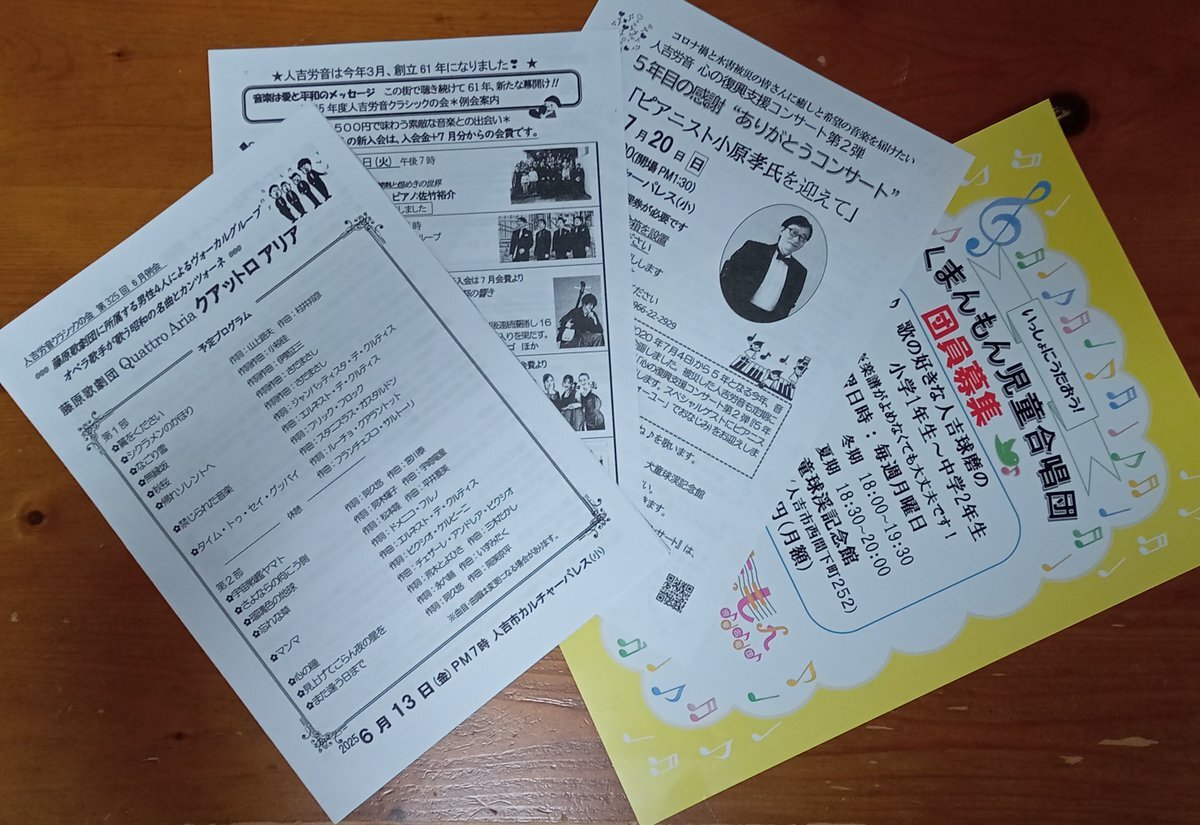 人吉労音クラシックの会 第325回 6月例会
藤原歌劇団に所属する男性4人によるヴォーカルグループ
オペラ歌手が歌う昭和の名曲とカンツォーネ
藤原歌劇団 Quattro Aria クアットロ アリア
予定プログラム
第1部
✿翼をください 作詞:山上路夫 作曲:村井邦彦
✿シクラメンのかほり 作詞作曲:小椋佳
✿なごり雪 作詞作曲:伊勢正三
✿無縁坂 作詞作曲:さだまさし
✿秋桜 作詞作曲:さだまさし
✿帰れソレントへ 作詞:ジャンバッティスタ・デ・クルティス
作曲:エルネスト・デ・クルティス
✿禁じられた音楽 作詞:フリック・フロック
作曲:スタニスラス・ガスタルドン
✿タイム・トゥ・セイ・グッバイ 作詞:ルーチョ・クアラントット
作曲:フランチェスコ・サルトーリ
休憩
第2部
✿宇宙戦艦ヤマト 作詞:阿久悠 作曲:宮川泰
✿さよならの向こう側 作詞:阿木燿子 作曲:宇崎竜童
✿瑠璃色の地球 作詞:松本隆 作曲:平井夏美
✿忘れな草 作詞:ドメニコ・フルノ
作曲:エルネスト・デ・クルティス
✿マンマ 作詞:ビクシオ・ケルビーニ
作曲:チェザーレ・アンドレア・ビクシオ
✿心の瞳 作詞:荒木とよひさ 作曲:三木たかし
✿見上げてごらん夜の星を 作詞:永六輔 作曲:いずみたく
✿また逢う日まで 作詞:阿久悠 作曲:筒美京平
※曲目・曲順は変更になる場合があります。
2025 6月13日(金)PM7時 人吉市カルチャーパレス(小)
★人吉労音は今年3月、創立61年になりました❣★
音楽は愛と平和のメッセージ この街で聴き続けて61年、新たな幕開け!!
5年度人吉労音クラシックの会*例会案内
500円で味わう素敵な音楽との出会い*
の新入会は、入会金+7月分からの会費です。
日(火) 午後7時
煌めきの世界
ピアノ:佐竹裕介
しました
時
ループ
新入会は7月会費より
の響き
連続優勝し16
入りを果たす。
ゴ ほか
コロナ禍と水害被災の皆さんに癒しと希望の音楽を届けたい
人吉労音 心の復興支援コンサート第2弾
5年目の感謝 “ありがとうコンサート”
「ピアニスト小原孝氏を迎えて」
7月20日(日)
(開場PM1:30)
ャーパレス(小)
理券が必要です
金箱を設置
ださい
しします
ください
966-22-2929
020年7月4日から5年となる今年、音
「心の復興支援コンサート第2弾「5年
します。スペシャルゲストにピアニス
ーユー」でおなじみ)をお迎えし
ね♪を歌います。
大童球渓記念館
い。
ます。
サート』は、
くまんもん児童合唱団
いっしょにうたおう!
団員募集
歌の好きな人吉球磨の
小学1年生~中学2年生
楽譜がよめなくても大丈夫です!
日時:毎週月曜日
冬期 18:00~19:30
夏期 18:30-20:00
童球渓記念館
人吉市西間下町252)
円(月額)